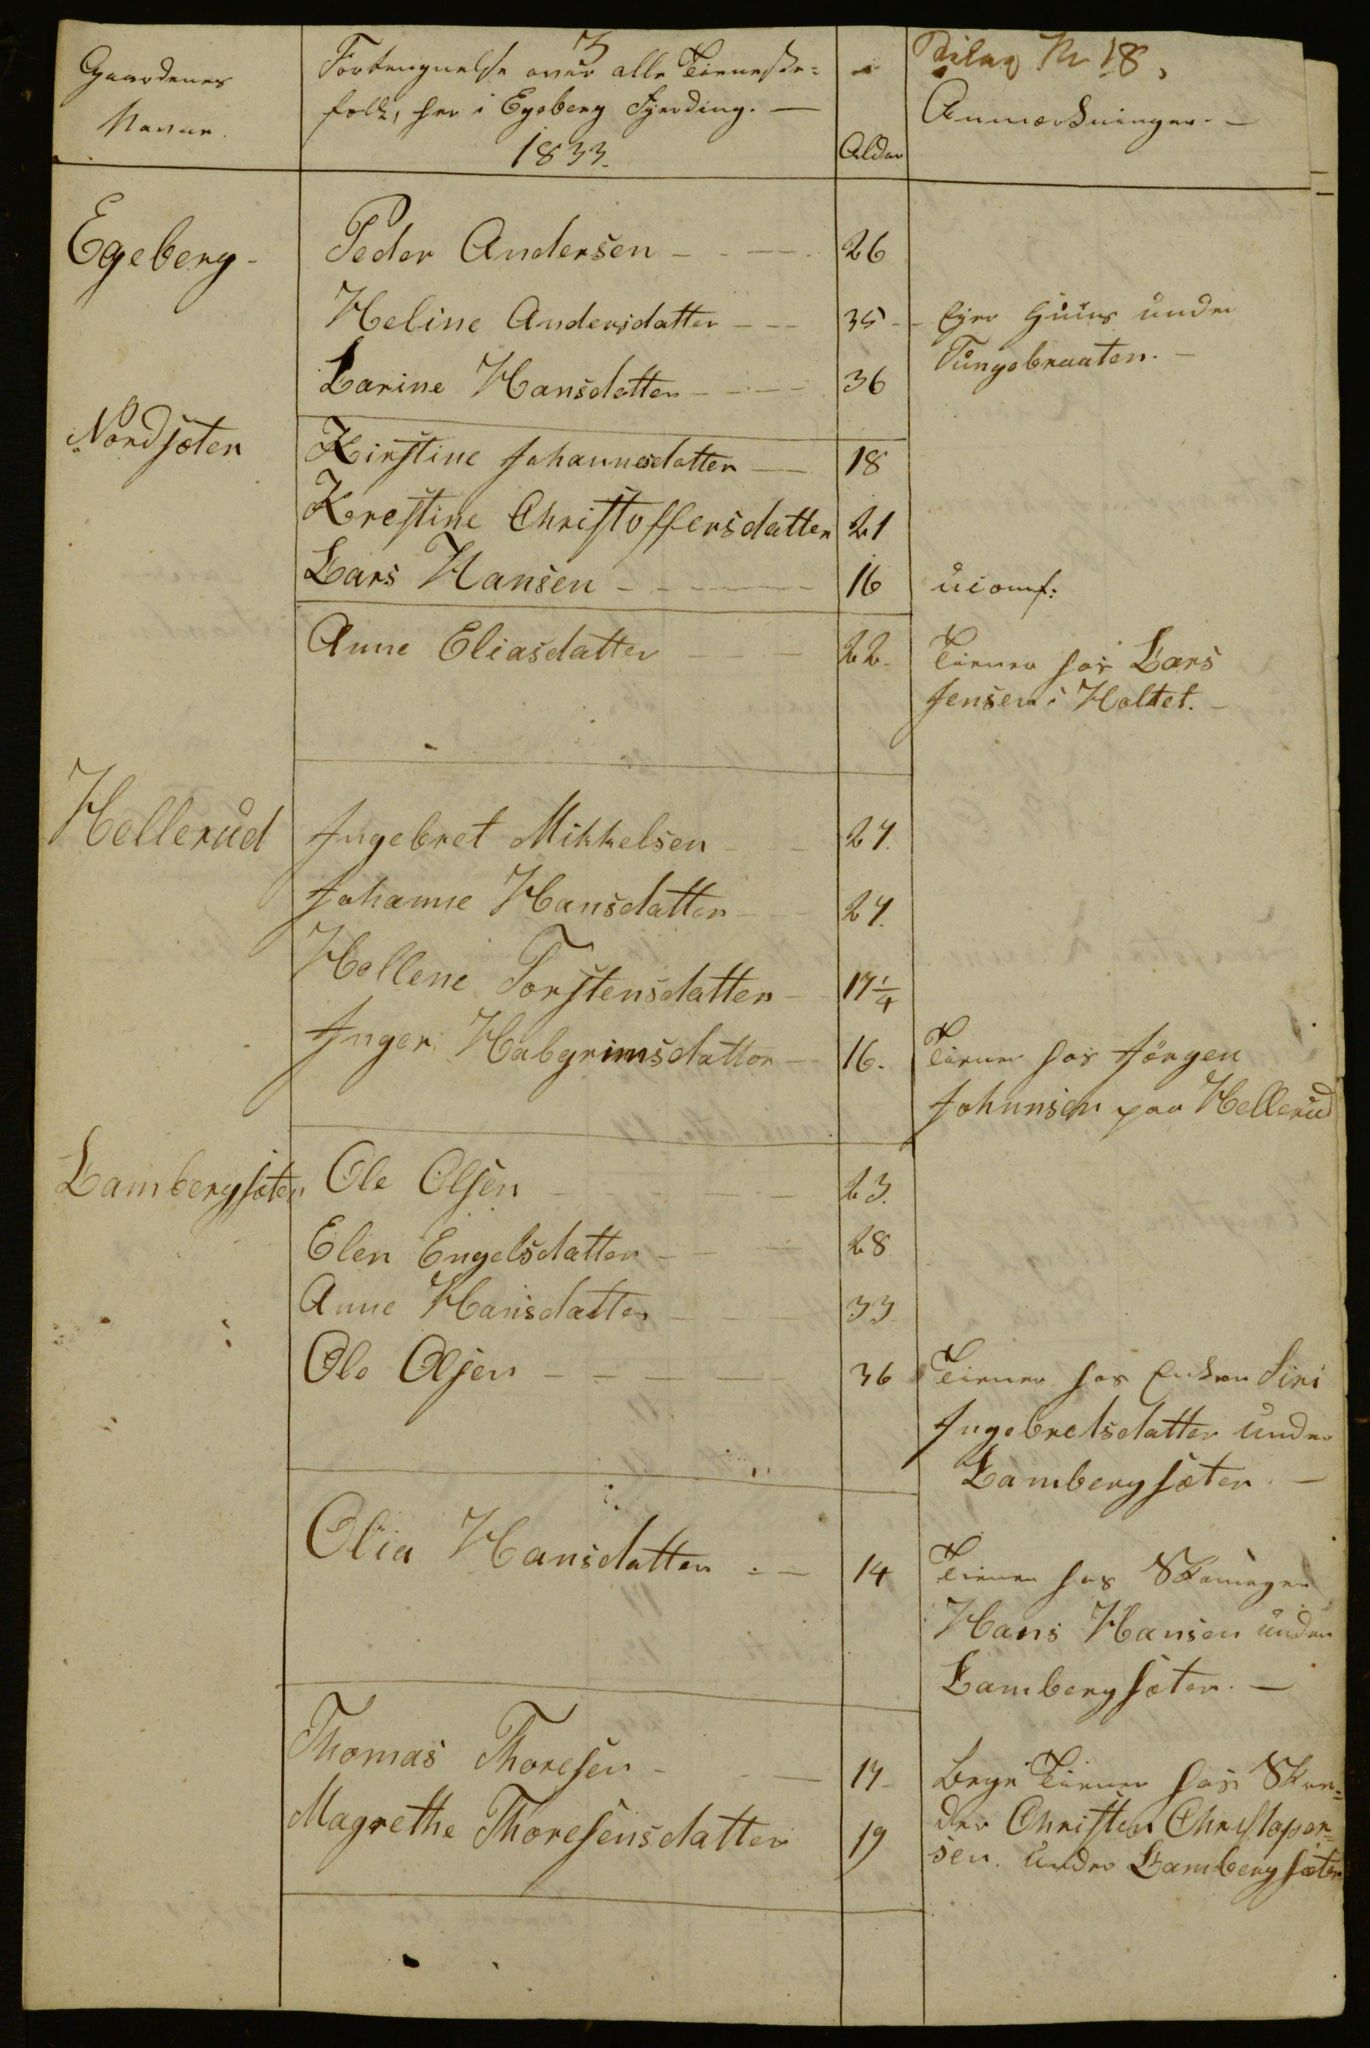 Bilag No 18,
Gaardenes
Navne.
Fortengnelse over alle Tieneste-
folk, her i Egeberg Fjerding. —
1833.
Alder
Anmærkninger. —
Egeberg -
Peder Andersen 26
Heline Andersdatter 35 - Eger Huus under
Tungebraaten. —
Larine Hansdatter 36
Nordsæter
Kirstine Johannesdatter 18
Krestine Christoffersdatter 21
Lars Hansen 16 uconf:
Anne Eliasdatter 22 Tiener hos Lars
Jensen i Holtet. —
Hellerud
Ingebret Mikkelsen 27.
Johanne Hansdatter 27.
Hellene Torstensdatter 17 1/4
Inger Halgrimsdatter 16. Tiener hos Jörgen
Johnnsen paa Hellerud
Lambergsæter
Ole Olsen 23.
Elen Engelsdatter 28
Anne Hansdatter 33
Ole Olsen 36 Tiener hos Enken Siri
Ingebretsdatter under
Lambergsæter. —
Olia Hansdatter 14 Tiener hos
Hans Hansen under
Lambergsæter. —
Thomas Thoresen 17 - begge Tiener hos Skre-
Magrethe Thoresensdatter 19 der Christen Christoper-
sen. under Lambergsæter